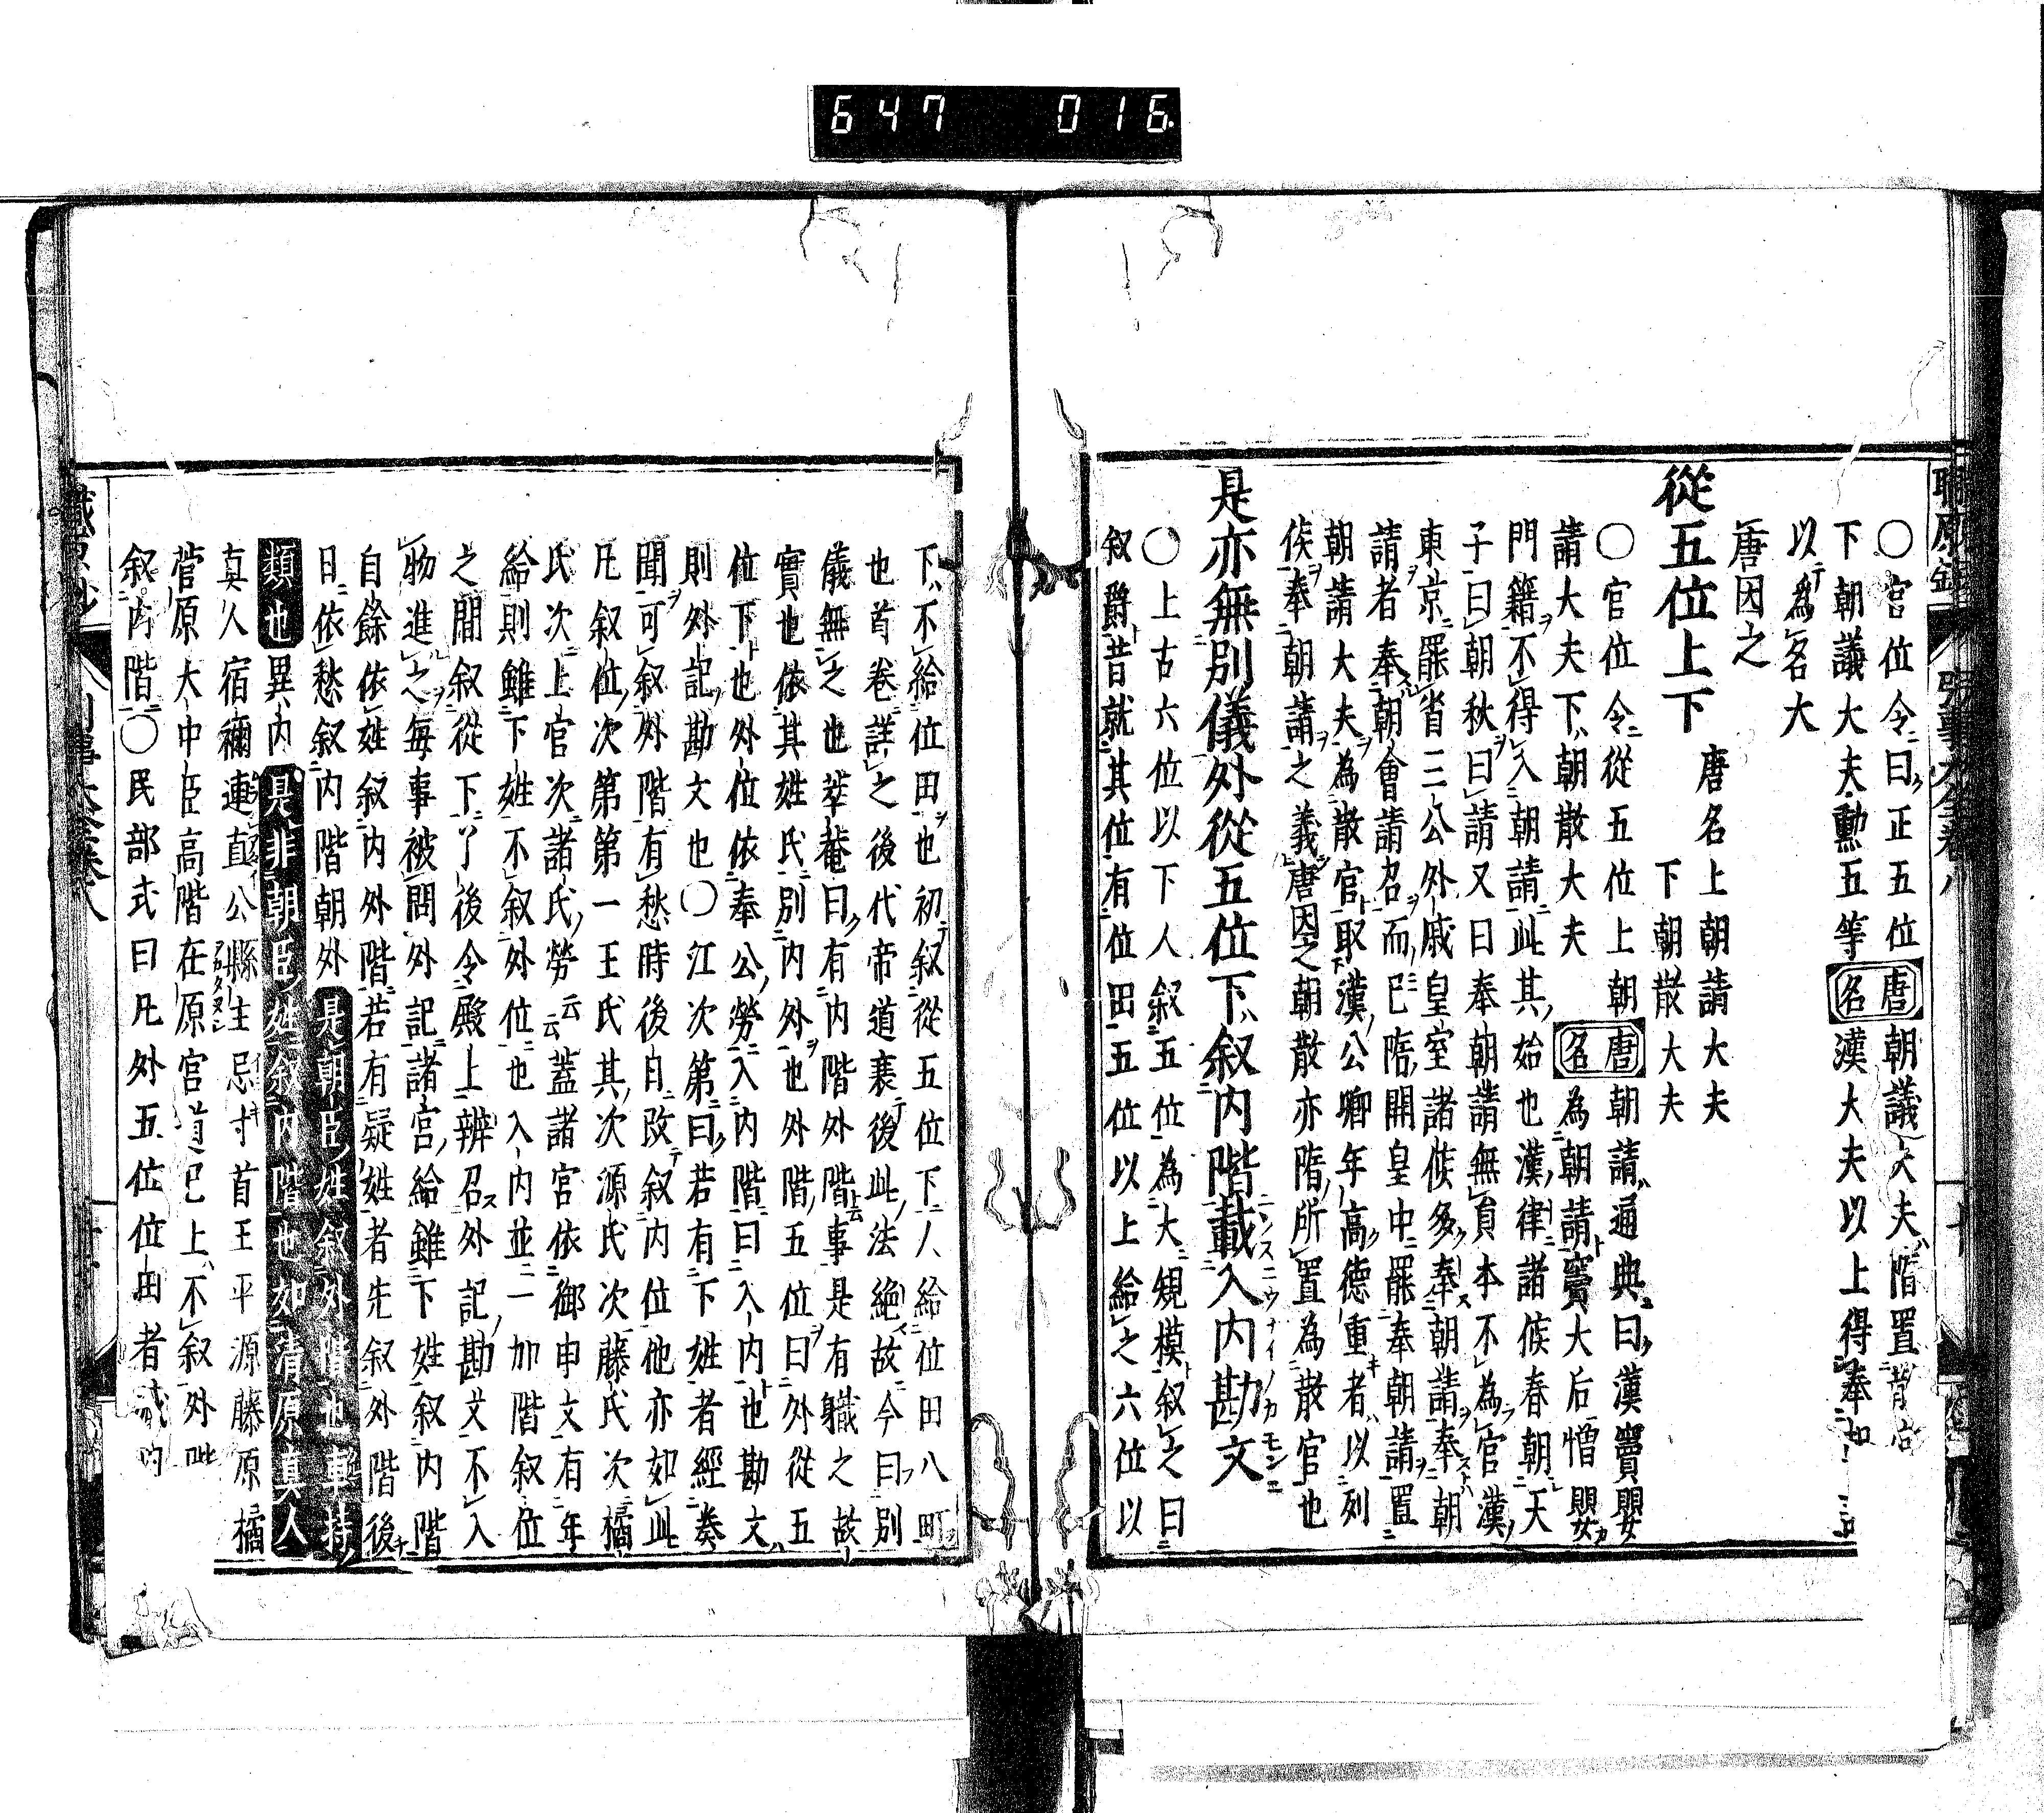 647 016
〇官位令曰正五位唐名朝議大夫隋置散官
下朝議大夫勲五等漢大夫以上得奉
以為名大
唐因之
從五位上下
唐名上朝請大夫
下朝散大夫
〇官位令從五位上朝唐名朝請通典曰漢竇嬰
請大夫下朝散大夫為朝請竇大后憎嬰
門籍不得入朝請此其始也漢律諸侯春朝天
子曰朝秋曰請又曰奉朝請無員本不為官漢
東京罷省三公外戚皇室諸侯多奉朝請奉朝
請者奉朝會請召而已隋開皇中罷奉朝請置
朝請大夫為散官取漢公卿年高德重者以列
侯奉朝請之義唐因之朝散亦隋所置為散官也
是亦無別儀外從五位下叙内階載入内勘文
〇上古六位以下人叙五位為大規模叙之曰
叙爵昔就其位有位田五位以上給之六位以
下不給位田也初叙從五位下人給位田八町
也首卷註之後代帝道衰後此法絶故今曰別
儀無之也華菴曰有内階外階事是有職之故
實也依其姓氏別内外也外階五位曰外從五
位下也外位依奉公勞入内階曰入内也勘文
則外記勘文也〇江次第曰若有下姓者經奏
聞可叙外階有愁時後自改叙内位他亦如此
凡叙位次第第一王氏其次源氏次藤氏次橘
氏次上官次諸氏勞云云蓋諸宮依御申文有年
給則雖下姓不叙外位也入内並二一加階叙位
之間叙從下了後令殿上辨召外記勘文不入
物進之毎事被問外記諸宮給雖下姓叙内階
自餘依姓叙内外階若有疑姓者先叙外階後
日依愁叙内階朝外是朝臣姓叙外階也車持
類也異内是非朝臣姓叙内階也如清原真人
真人宿禰連直公縣主忌寸首王平源藤原橘
菅原大中臣高階在原宮道已上不叙外階
叙内階〇民部式曰凡外五位位田者